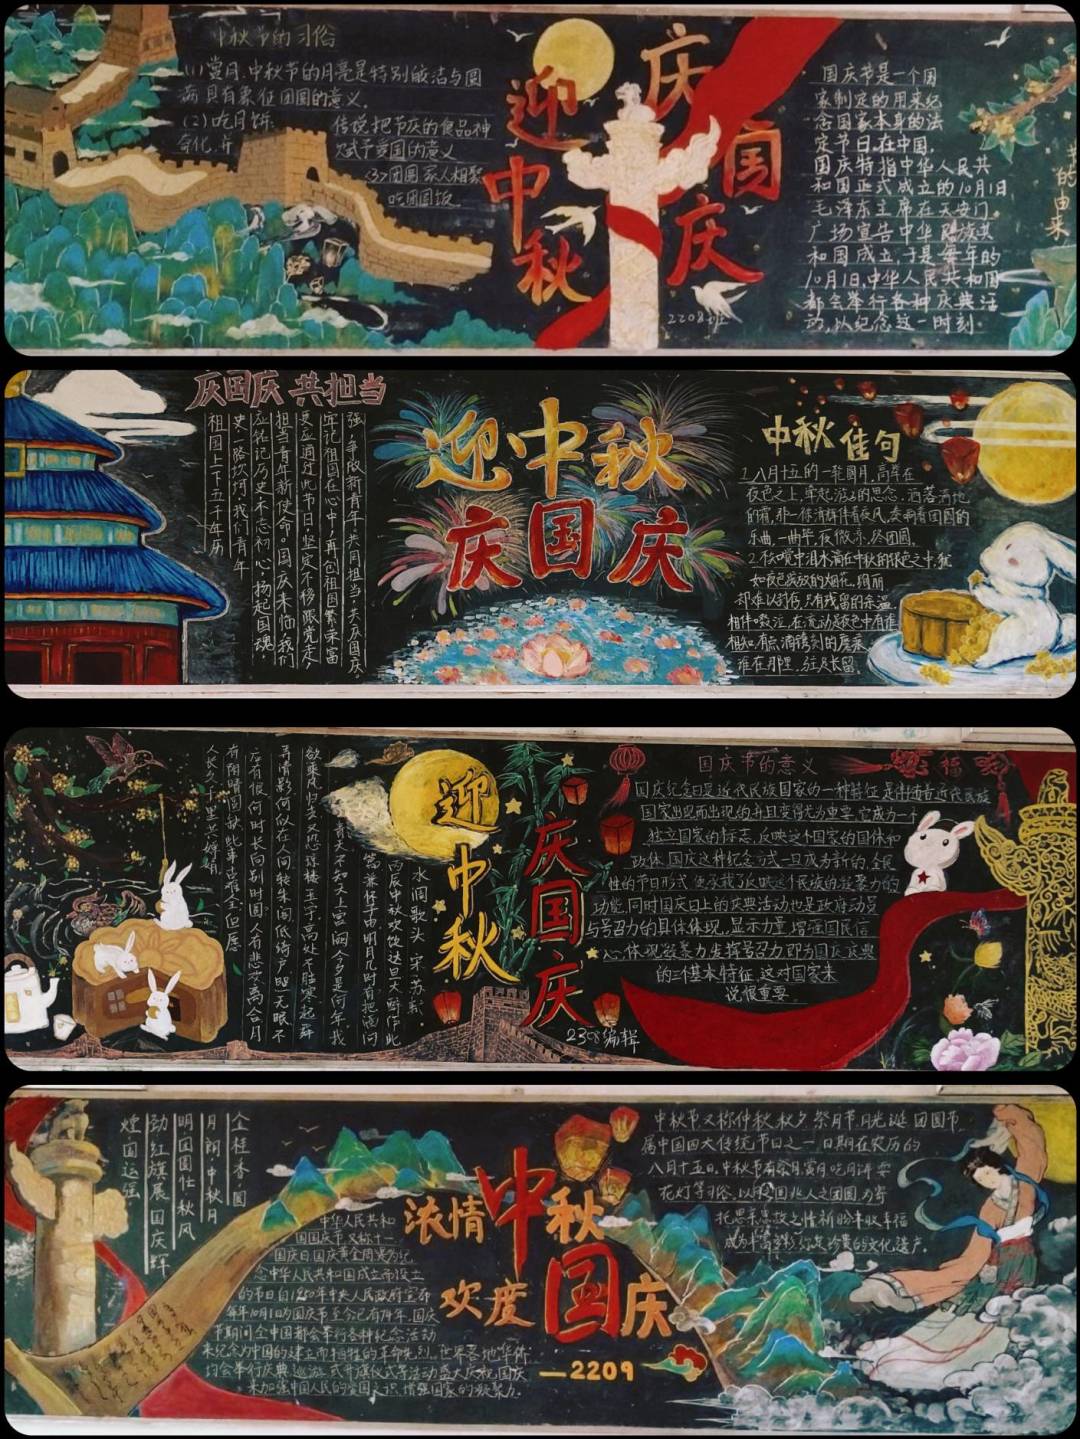 中秋节的习俗
(1)赏月.中秋节的月亮是特别皎洁与圆
满具有象征团圆的意义.
(2)吃月饼
传说把节庆的食品神
赋予爱国的意义
<3>团圆家人相聚
吃团圆饭
迎中秋
庆国庆
2208班
国庆节是一个国
家制定的用来纪
念国家本身的法
定节日.在中国,
国庆特指中华人民共
和国正式成立的10月1日
毛泽东主席在天安门
广场宣告中华民族共
和国成立,于是每年的
10月1日,中华人民共和国
都会举行各种庆典活
动,以纪念这一时刻.
的由来
庆国庆 共担当
祖国上下五千年历
史一路坎坷我们青年
应铭记历史不忘初心,扬起国魂,
担当青年新使命.国庆来临我们
更应通过此节日坚定不移跟党走,
牢记祖国在心中,再创祖国繁荣富
强,争做新青年,共同担当,共庆国庆.
迎中秋
庆国庆
中秋佳句
1.八月十五的一轮圆月,高悬在
夜色之上,牵起游子的思念.洒落满地
乐曲,一曲毕,夜微凉,终团圆.
相伴
谁在那里,驻足长留
水调歌头 宋苏轼
丙辰中秋欢饮达旦大醉作此
篇兼怀子由明月几时有把酒问
青天不知天上宫阙今夕是何年我
欲乘风归去又恐琼楼玉宇高处不胜寒起舞
弄清影何似在人间转朱阁低绮户照无眠不
应有恨何时长向别时圆人有悲欢离合月
有阴晴圆缺此事古难全但愿
人长久千里共婵娟
迎中秋
庆国庆
2308编辑
国庆节的意义
福
国庆纪念日是近代民族国家的一种特征是伴随着近代民族
国家出现而出现的并且变得尤为重要.它成为一个
独立国家的标志,反映这个国家的国体和
政体.国庆这种纪念方式一旦成为新的全民
性的节日形式便承载了反映这个民族的凝聚力的
功能.同时国庆日上的庆典活动也是政府动员
与号召力的具体体现.显示力量,增强国民信
心,体现凝聚力,发挥号召力,即为国庆庆典
的三个基本特征.这对国家来
说很重要.
金桂香圆
月朗中秋月
明国圆仕秋风
劲红旗展国庆辉
煌国运强
中华人民共和
国国庆节又称十一
国庆日国庆黄金周
念中华人民共和国成立而设立
的节日自
每年10月1日为国庆节至今已有74年.国庆
节期间全中国都会举行各种纪念活动
来纪念为中国的建立而牺牲的革命先烈.世界各地华侨
约会举行庆典
来加强中国人民的爱国意识,增强国家的凝聚力.
浓情中秋
欢度国庆
—2209
中秋节又称仲秋,秋夕,祭月节,月光诞,团圆节
属中国四大传统节日之一,日期在农历的
八月十五日,中秋节有祭月赏月吃月饼
花灯等习俗,以月圆兆人之团圆为寄
托思念故之情祈盼丰收幸福
成为丰富多彩,弥足珍贵的文化遗产.